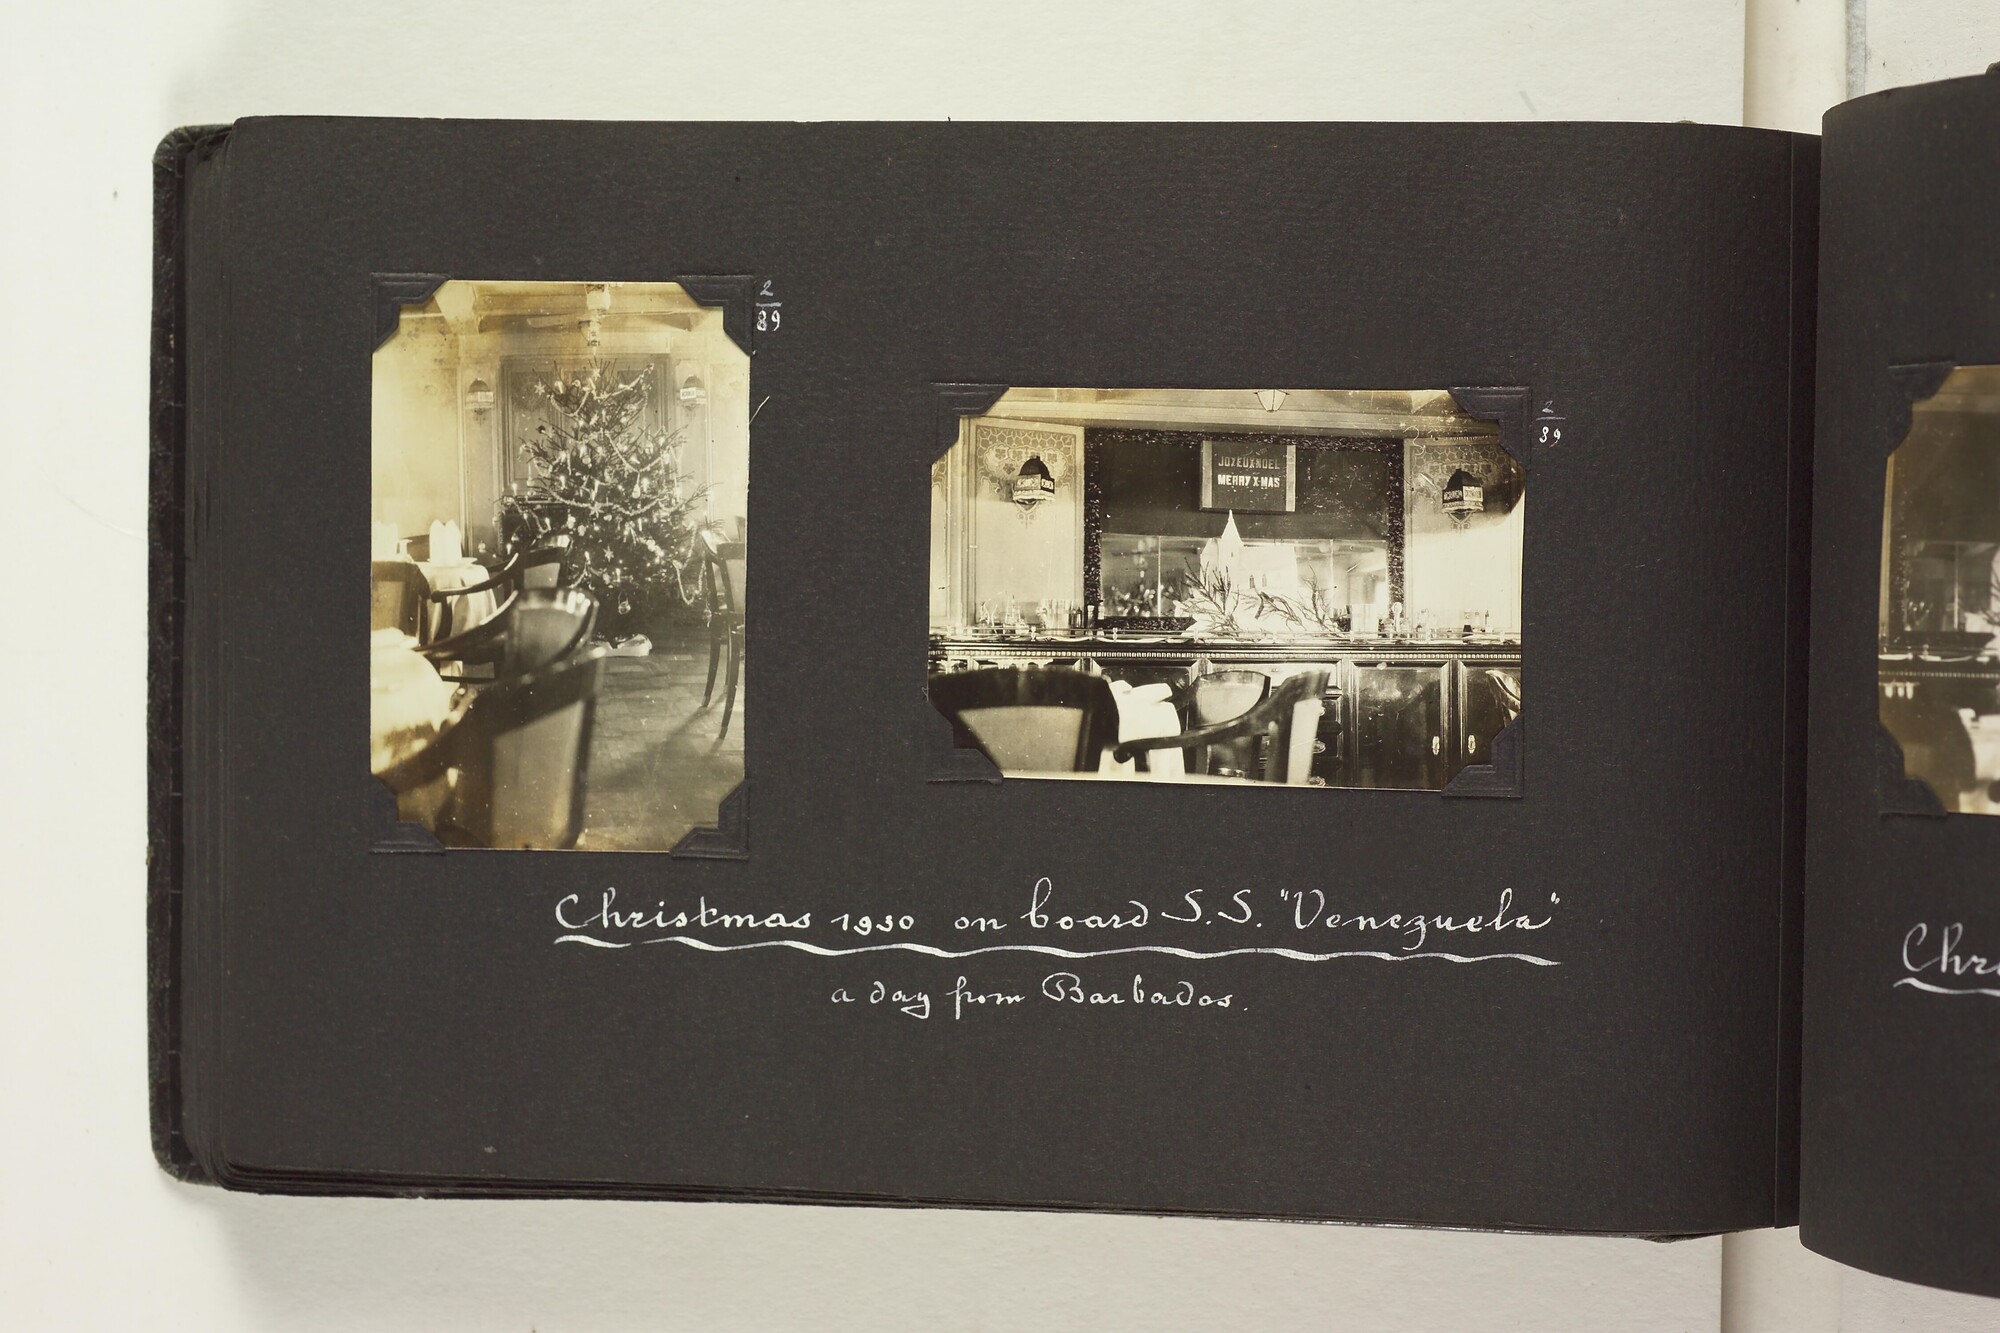 2
89
2
89
JOYEUX NOEL
MERRY X-MAS
Christmas 1930 on board S.S. "Venezuela"
a day from Barbados.
Chri